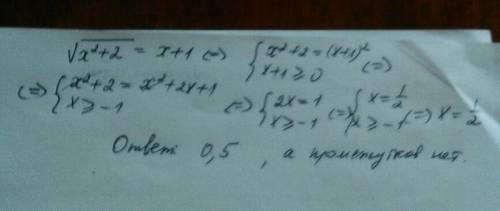 √(x²+2) = x+1 (=) { x²+2 = (x+1)² ; x+1 ≥ 0 (=)
(=) { x²+2 = x²+2x+1 ; x ≥ -1 (=) { 2x = 1 ; x ≥ -1 (=) { x = 1/2 ; x ≥ -1 (=) x = 1/2
Ответ: 0,5 , а промежутков нат.